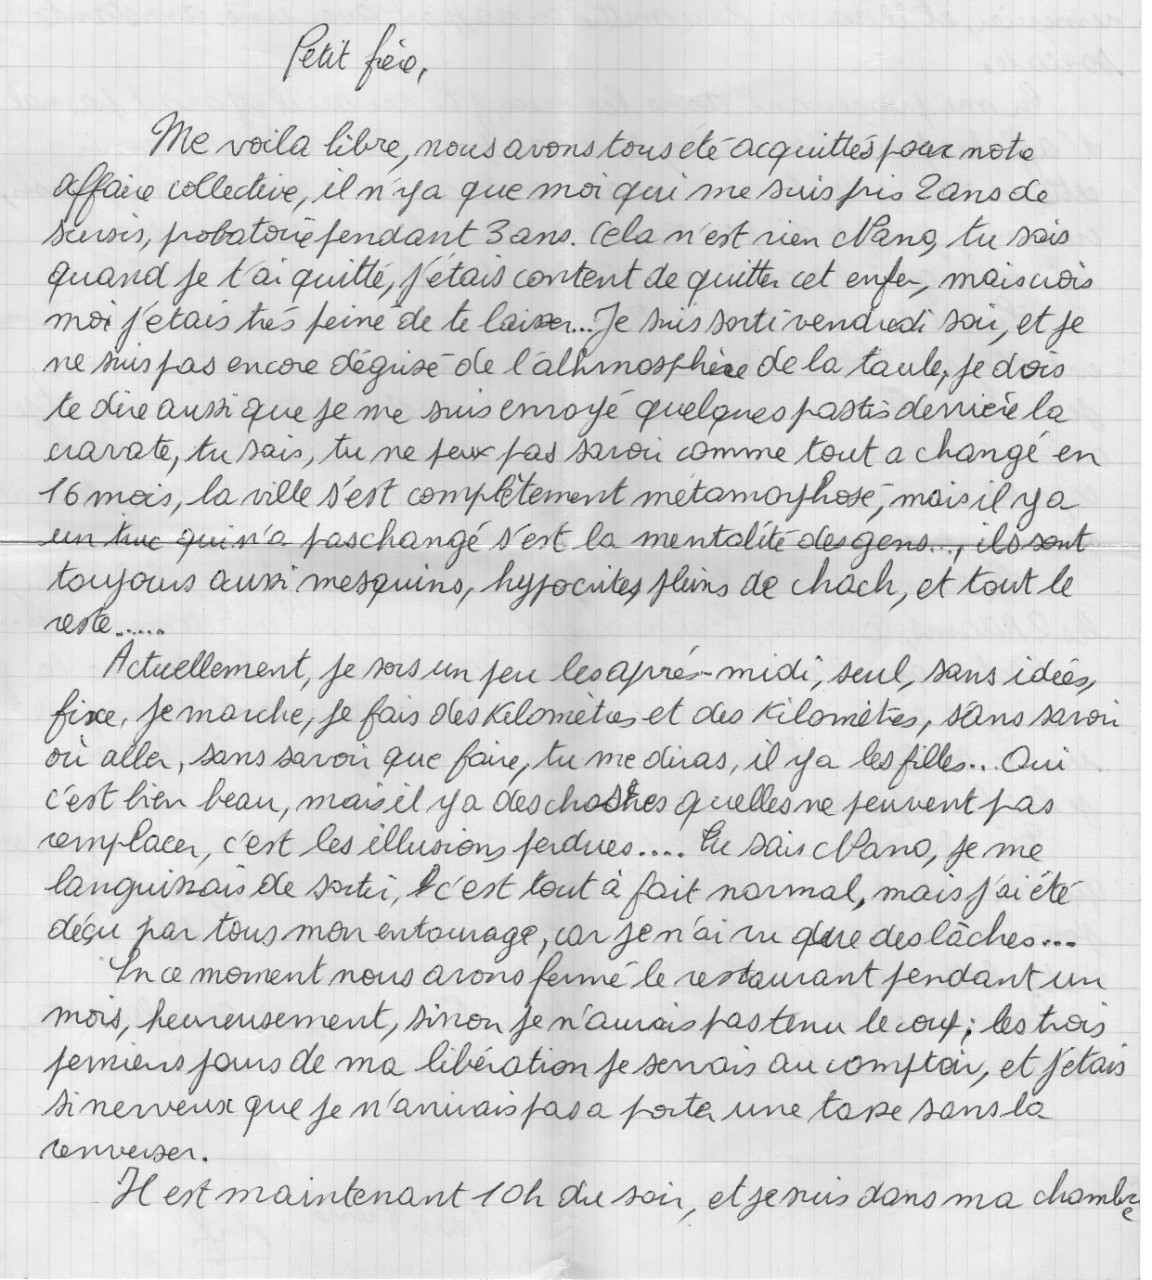 Petit frère,
Me voila libre, nous avons tous été acquittés pour note
affaire collective, il n'ya que moi qui me suis pis 2 ans de
sursis, probatoire pendant 3 ans. Cela n'est rien Nano, tu sais
quand je t'ai quitté, j'étais content de quitter cet enfer, mais crois
moi j'étais trés peiné de te laisser... Je suis sorti vendredi soir, et je
ne suis pas encore dégrisé de l'athmosphère de la taule, je dois
te dire aussi que je me suis envoyé quelques pastis derrière la
cravate, tu sais, tu ne peux pas savoir comme tout a changé en
16 mois, la ville s'est complètement métamorphosé, mais il ya
un truc qui n'a pas changé s'est la mentalité des gens..., ils sont
toujours aussi mesquins, hypocrites, pleins de chach, et tout le
reste.....
Actuellement, je sors un peu les aprés-midi, seul, sans idées,
fixe, je marche, je fais des Kilomètres et des Kilomètres, sans savoir
où aller, sans savoir que faire, tu me diras, il ya les filles... Oui
c'est bien beau, mais il ya des choses quelles ne peuvent pas
remplacer, c'est les illusions perdues.... Tu sais Nano, je me
languissais de sortir, c'est tout à fait normal, mais j'ai été
déçu par tous mon entourage, car je n'ai vu que des lâches...
En ce moment nous avons fermé le restaurant pendant un
mois, heureusement, sinon je n'aurais pas tenu le coup; les trois
premiers jours de ma libération je servais au comptoir, et j'étais
si nerveux que je n'arrivais pas a porter une tasse sans la
renverser.
Il est maintenant 10h du soir, et je suis dans ma chambre